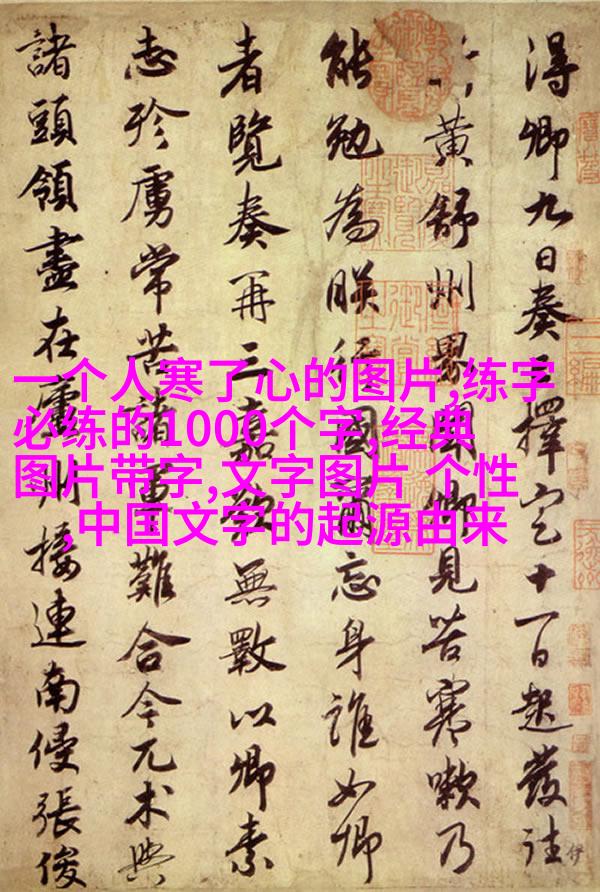 得卿九日奏已擇定十一日起發往
黃舒州界聞卿見苦寒嗽乃
能勉為朕行國爾忘身誰如卿
者覽奏再三嘉歎無數以卿素
志殄虜常苦諸軍難合今兀朮與
諸頭領盡在廬州接連南侵張俊
一个人寒了心的图片,练字
必练的1000个字,经典
图片带字,文字图片 个性
,中国文字的起源由来